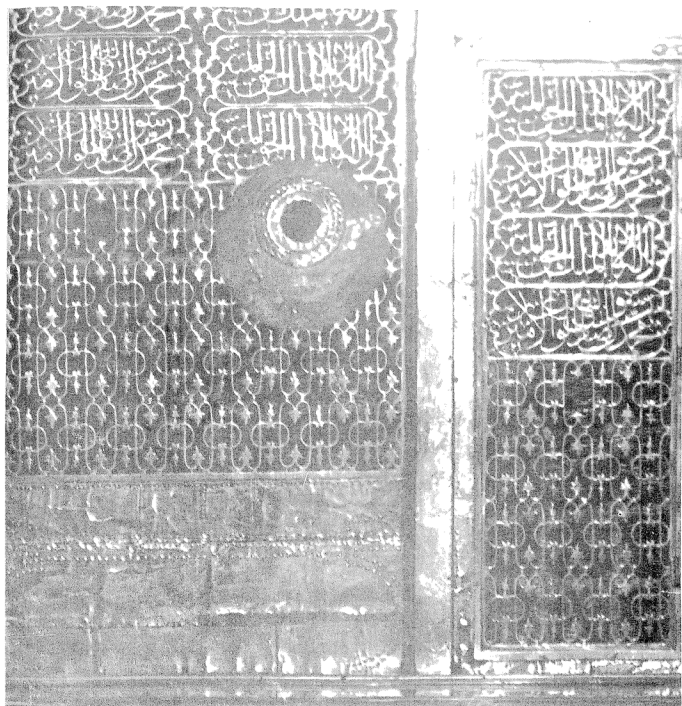 لا إله إلا الله الملك الحق المبين
محمد رسول الله صادق الوعد الأمين
لا إله إلا الله الملك الحق المبين
محمد رسول الله صادق الوعد الأمين
لا إله إلا الله الملك الحق المبين
محمد رسول الله صادق الوعد الأمين
لا إله إلا الله الملك الحق المبين
محمد رسول الله صادق الوعد الأمين